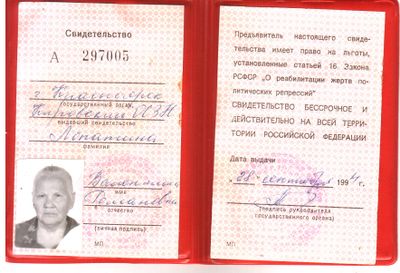 Свидетельство
А 297005
г. Красноярск
(государственный орган,
Кировский
выдавший свидетельство)
фамилия
Валентина
имя
Романовна
отчество
(личная подпись)
МП
Предъявитель настоящего свиде-
тельства имеет право на льготы,
установленные статьей 16 Закона
РСФСР „О реабилитации жертв по-
литических репрессий"
СВИДЕТЕЛЬСТВО БЕССРОЧНОЕ И
ДЕЙСТВИТЕЛЬНО НА ВСЕЙ ТЕРРИ-
ТОРИИ РОССИЙСКОЙ ФЕДЕРАЦИИ
Дата выдачи
28 сентября 1994г.
(подпись руководителя
государственного органа)
МП